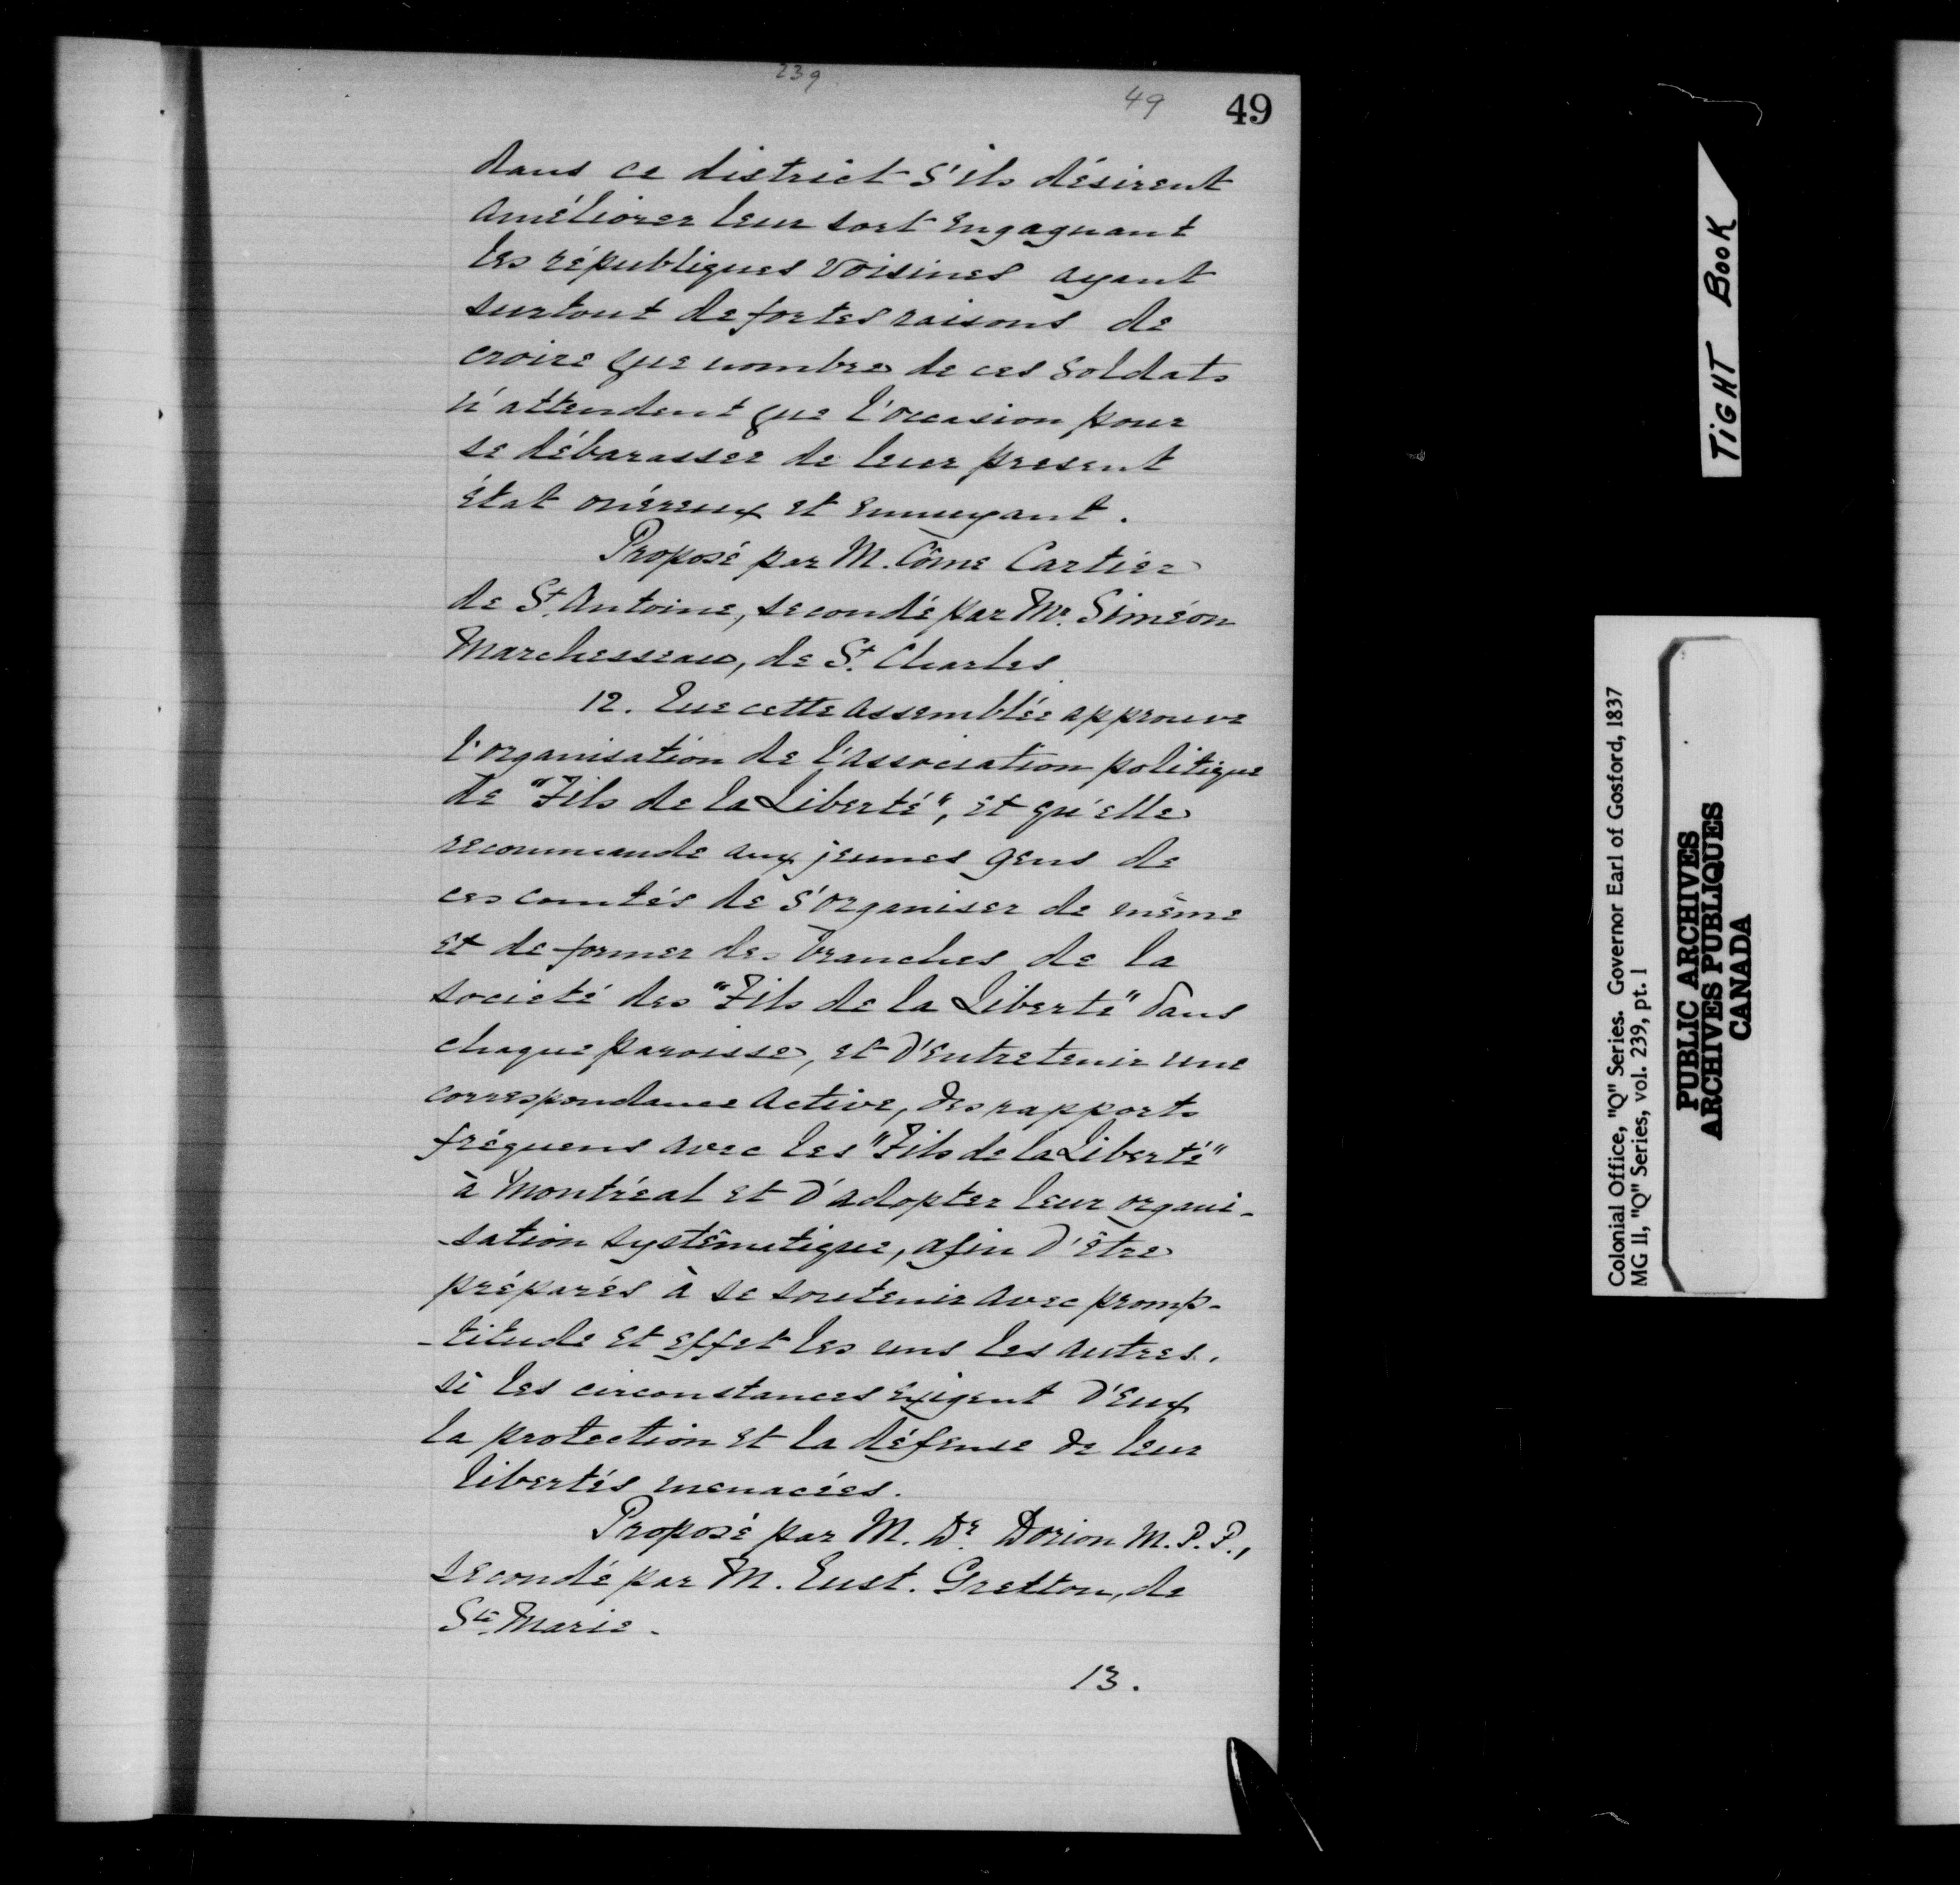 239
49
49
dans ce district s'ils désirent
améliorer leur sort en gagnant
les républiques voisines ayant
surtout de fortes raisons de
croire que nombre de ces soldats
n'attendent que l'occasion pour
se débarasser de leur present
état onéreux et ennuyant.
Proposé par M. Côme Cartier
de St. Antoine, secondé par Mr. Siméon
Marchesseau, de St. Charles
12. Que cette assemblée approuve
l'organisation de l'association politique
de "Fils de la Liberté", et qu'elle
recommande aux jeunes gens de
ces comtés de s'organiser de même
et de former des branches de la
société des "Fils de la Liberté" dans
chaque paroisse, et d'entretenir une
correspondance active, des rapports
fréquens avec les "Fils de la Liberté"
à Montréal et d'adopter leur organi-
-sation systêmatique, afin d'être
préparés à se soutenir avec promp-
-titude et effet les uns les autres,
si les circonstances exigent d'eux
la protection et la défense de leur
libertés menacées.
Proposé par M. Dr. Dorion M.P.P.,
secondé par M. Eust. Gretton, de
Ste. Marie.
13.
TIGHT BOOK
Colonial Office, "Q" Series. Governor Earl of Gosford, 1837
MG 11, "Q" Series, vol. 239, pt. 1
PUBLIC ARCHIVES
ARCHIVES PUBLIQUES
CANADA